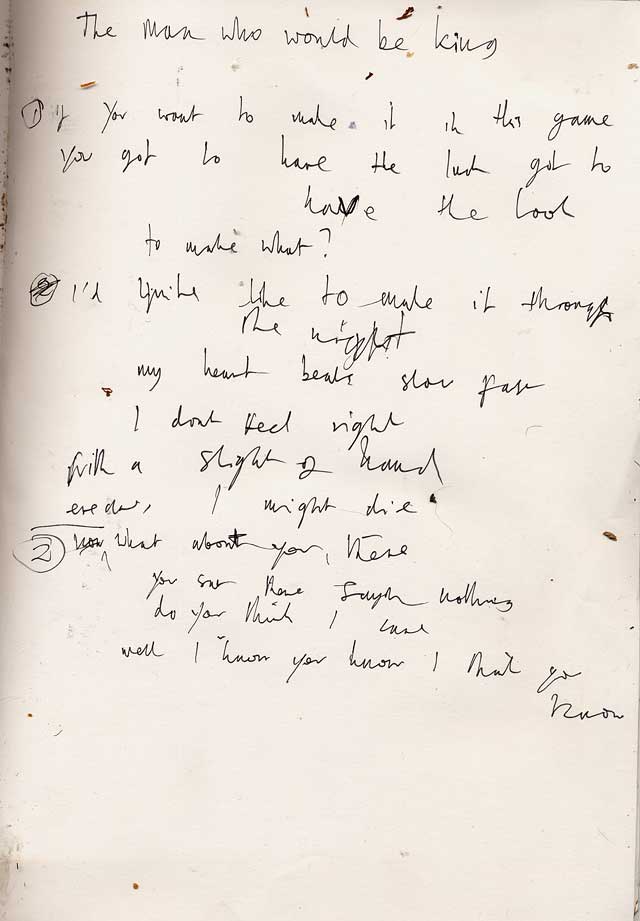 The man who would be king
① If you want to make it in this game
you got to have the luck got to
have the look
to make what?
② I'd quite like to make it through
the night
my heart beats slow fast
I dont feel right
with a slight of hand
I might die
② What about you, there
you sat there saying nothing
do you think I care
well I know you know I that you
know